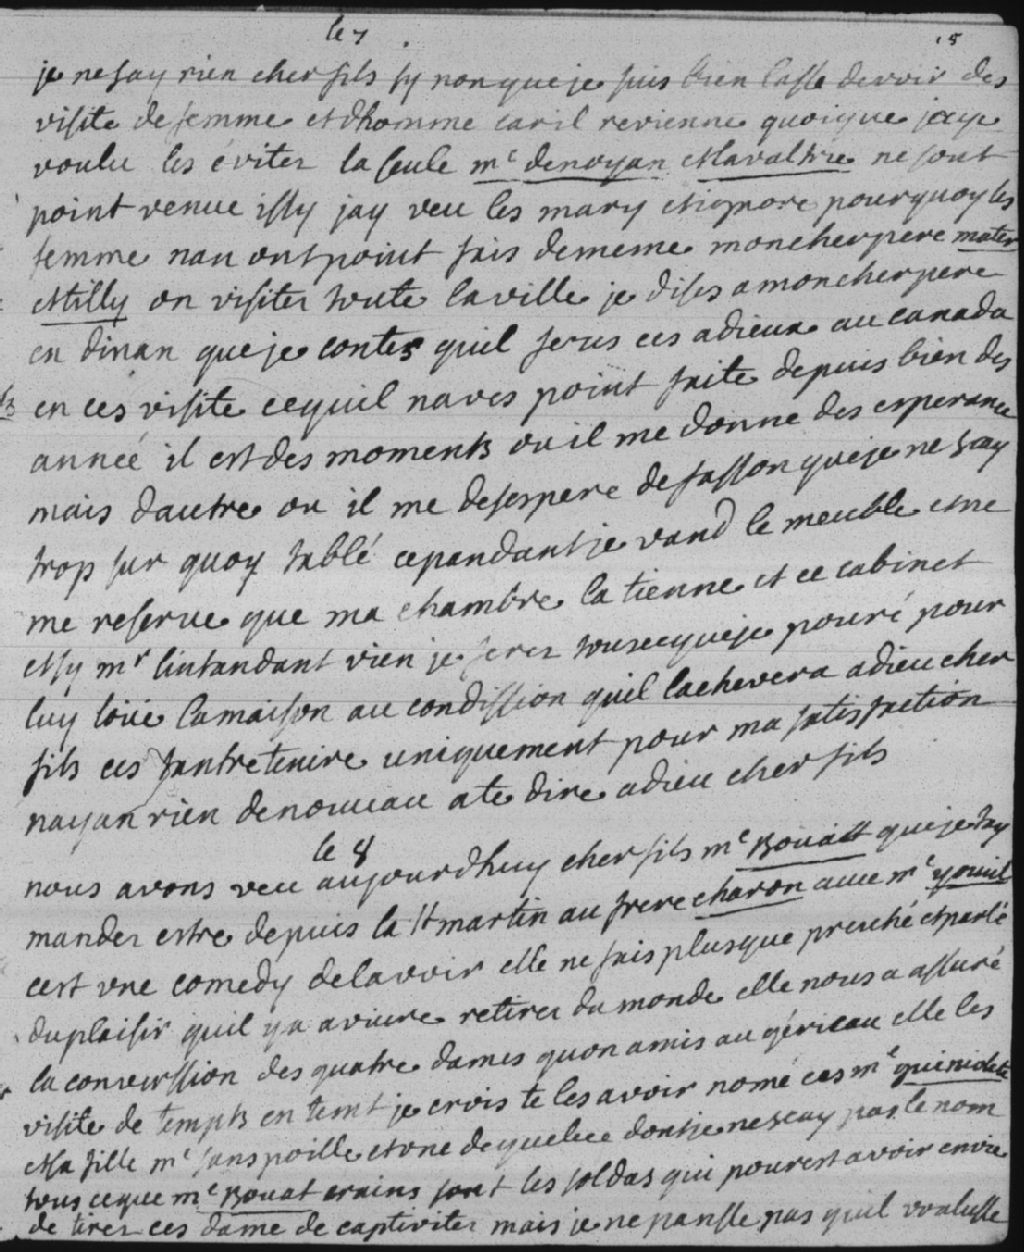 le 7
15
je ne say rien cher fils sy non que je suis bien lasse devoir des
visite de femme et dhomme car il revienne quoique jaye
voulu les éviter la seule me denoyan et lavaltrie ne sont
point venue issy jay veu les mary et ignore pourquoy les
femme nan ont point fais de meme mon cher pere mater
et tilly on visiter toute la ville je disés a mon cher pere
en dinan que je contes quil serus ces adieux au canada
en ces visite ce quil naves point faite depuis bien des
année il est des moments ou il me donne des esperance
mais dautre ou il me desespere de fasson que je ne say
trop sur quoy tablé cepandant je vand le meuble et ne
me reserve que ma chambre la tienne et ce cabinet
et sy mr lintandant vien je ferez tous ceque je pouré pour
luy loüe la maison au condission quil lachevera adieu cher
fils ces tantretenire uniquement pour ma satisfaction
nayan rien de nouveau a te dire adieu cher fils
le 8
nous avons veu aujourdhuy cher fils me Bouatt que je tay
mander estre depuis la st martin au frere charon avec me youvil
cest une comedy de lavoir elle ne fais plus que preiché et parlé
du plaisir quil y a a vivre retirer du monde elle nous a assuré
la conversion des quatre dames quon a mis au gericau elle les
visite de tempts en temt je crois te les avoir nomé ces me quiniolete
et sa fille me sanspoille et une de quebec dont je ne scay pas le nom
tous ceque me Bouat crains sont les soldas qui pourest avoir envie
de tirer ces dame de captiviter mais je ne pansse pas quil voulusse